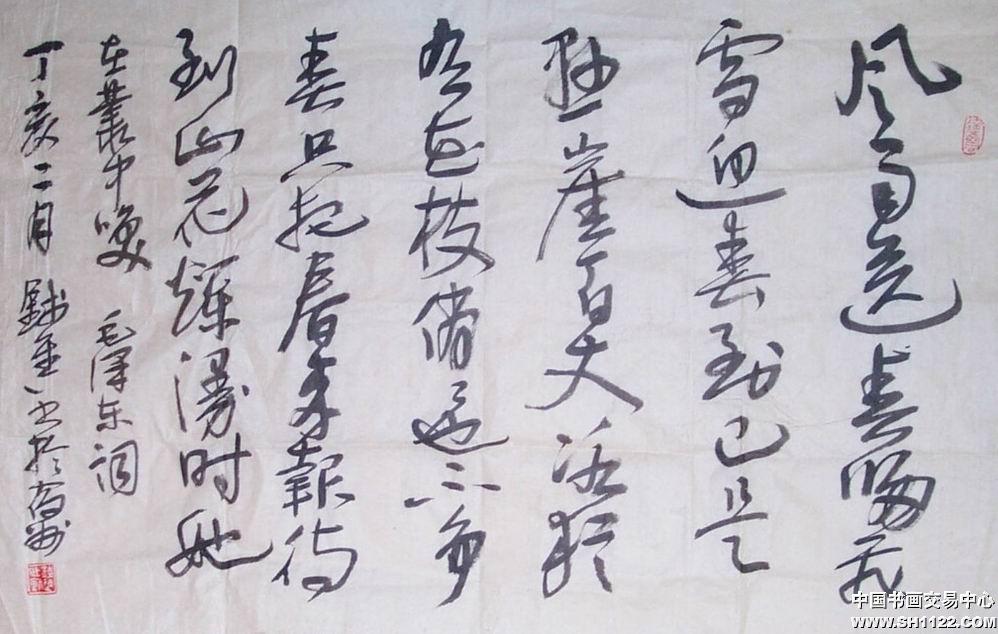 风雨送春归飞
雪迎春到已是
悬崖百丈冰犹
有花枝俏不争
春只把春来報待
到山花爛漫时她
在叢中咲 毛泽东词
丁亥二月 书於州
中国书画交易中心
WWW.SH1122.COM